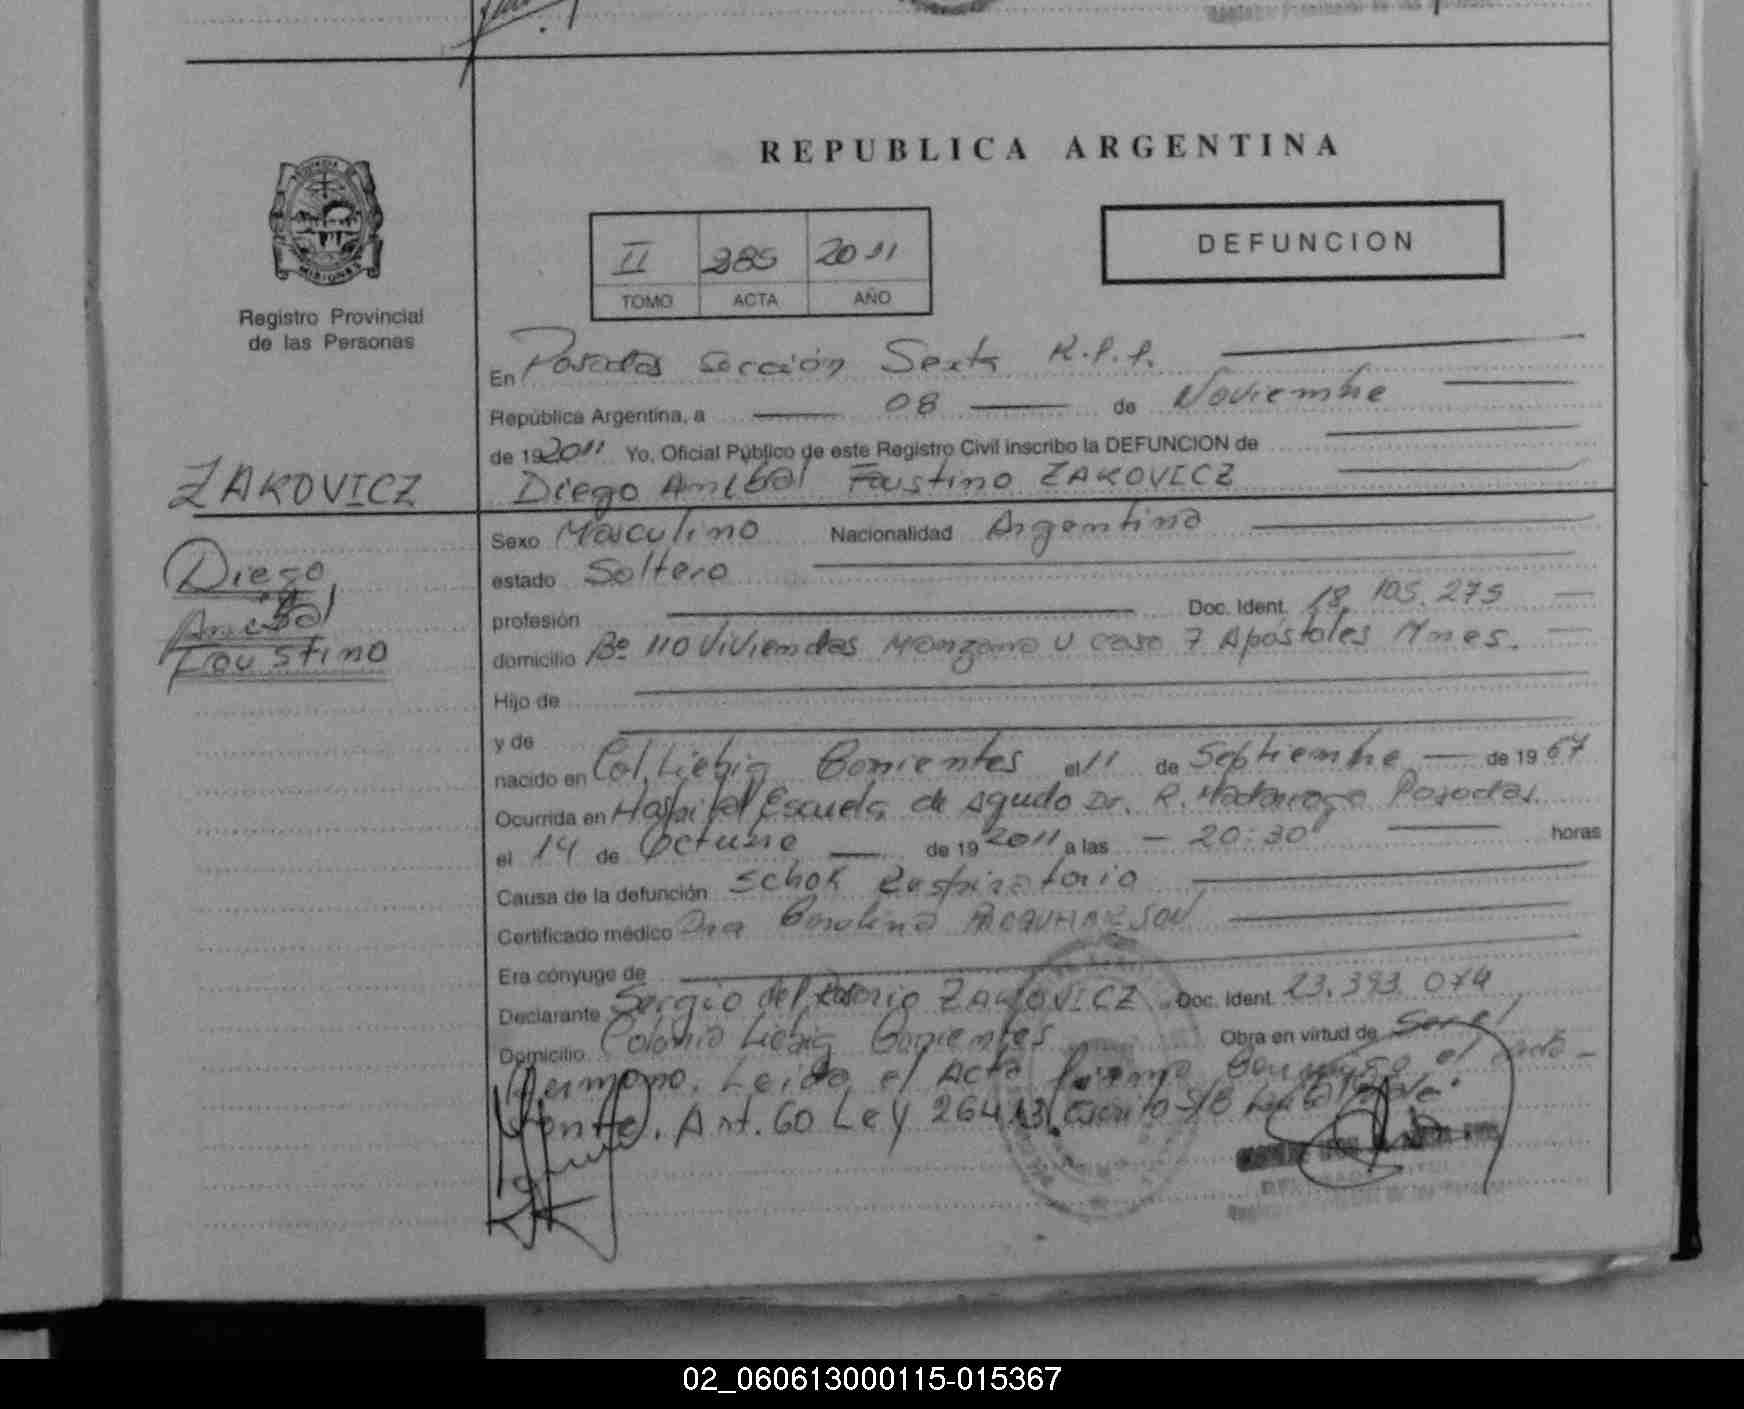 REPUBLICA ARGENTINA
DEFUNCION
II 285 2011
TOMO ACTA AÑO
PROVINCIA DE
MISIONES
Registro Provincial
de las Personas
En Posadas Sección Sexta R.P.P.
República Argentina, a 08 de Noviembre
de 192011 Yo, Oficial Público de este Registro Civil inscribo la DEFUNCION de
ZAKOVICZ
Diego Anibal Faustino ZAKOVICZ
Diego
Anibal
Faustino
Sexo Masculino Nacionalidad Argentina
estado Soltero
profesión Doc. Ident. 18.105.275
domicilio Bº 110 Viviendas Manzana U casa 7 Apóstoles Mnes.
Hijo de
y de
nacido en Col. Liebig Corrientes el 11 de Septiembre de 19 67
Ocurrida en Hospital Escuela de Agudo Dr. R. Madariaga Posadas
el 14 de Octubre de 19 2011 a las 20:30 horas
Causa de la defunción Schok Respiratorio
Certificado médico Dra Carolina
Era cónyuge de
Declarante Sergio del Rosario ZAKOVICZ Doc. Ident. 23.393.074
Domicilio Colonia Liebig Corrientes Obra en virtud de Ser el
Hermano. Leida el Acta firma Conmigo el
Art. 60 Ley 26413. Escrito S/B
02_060613000115-015367